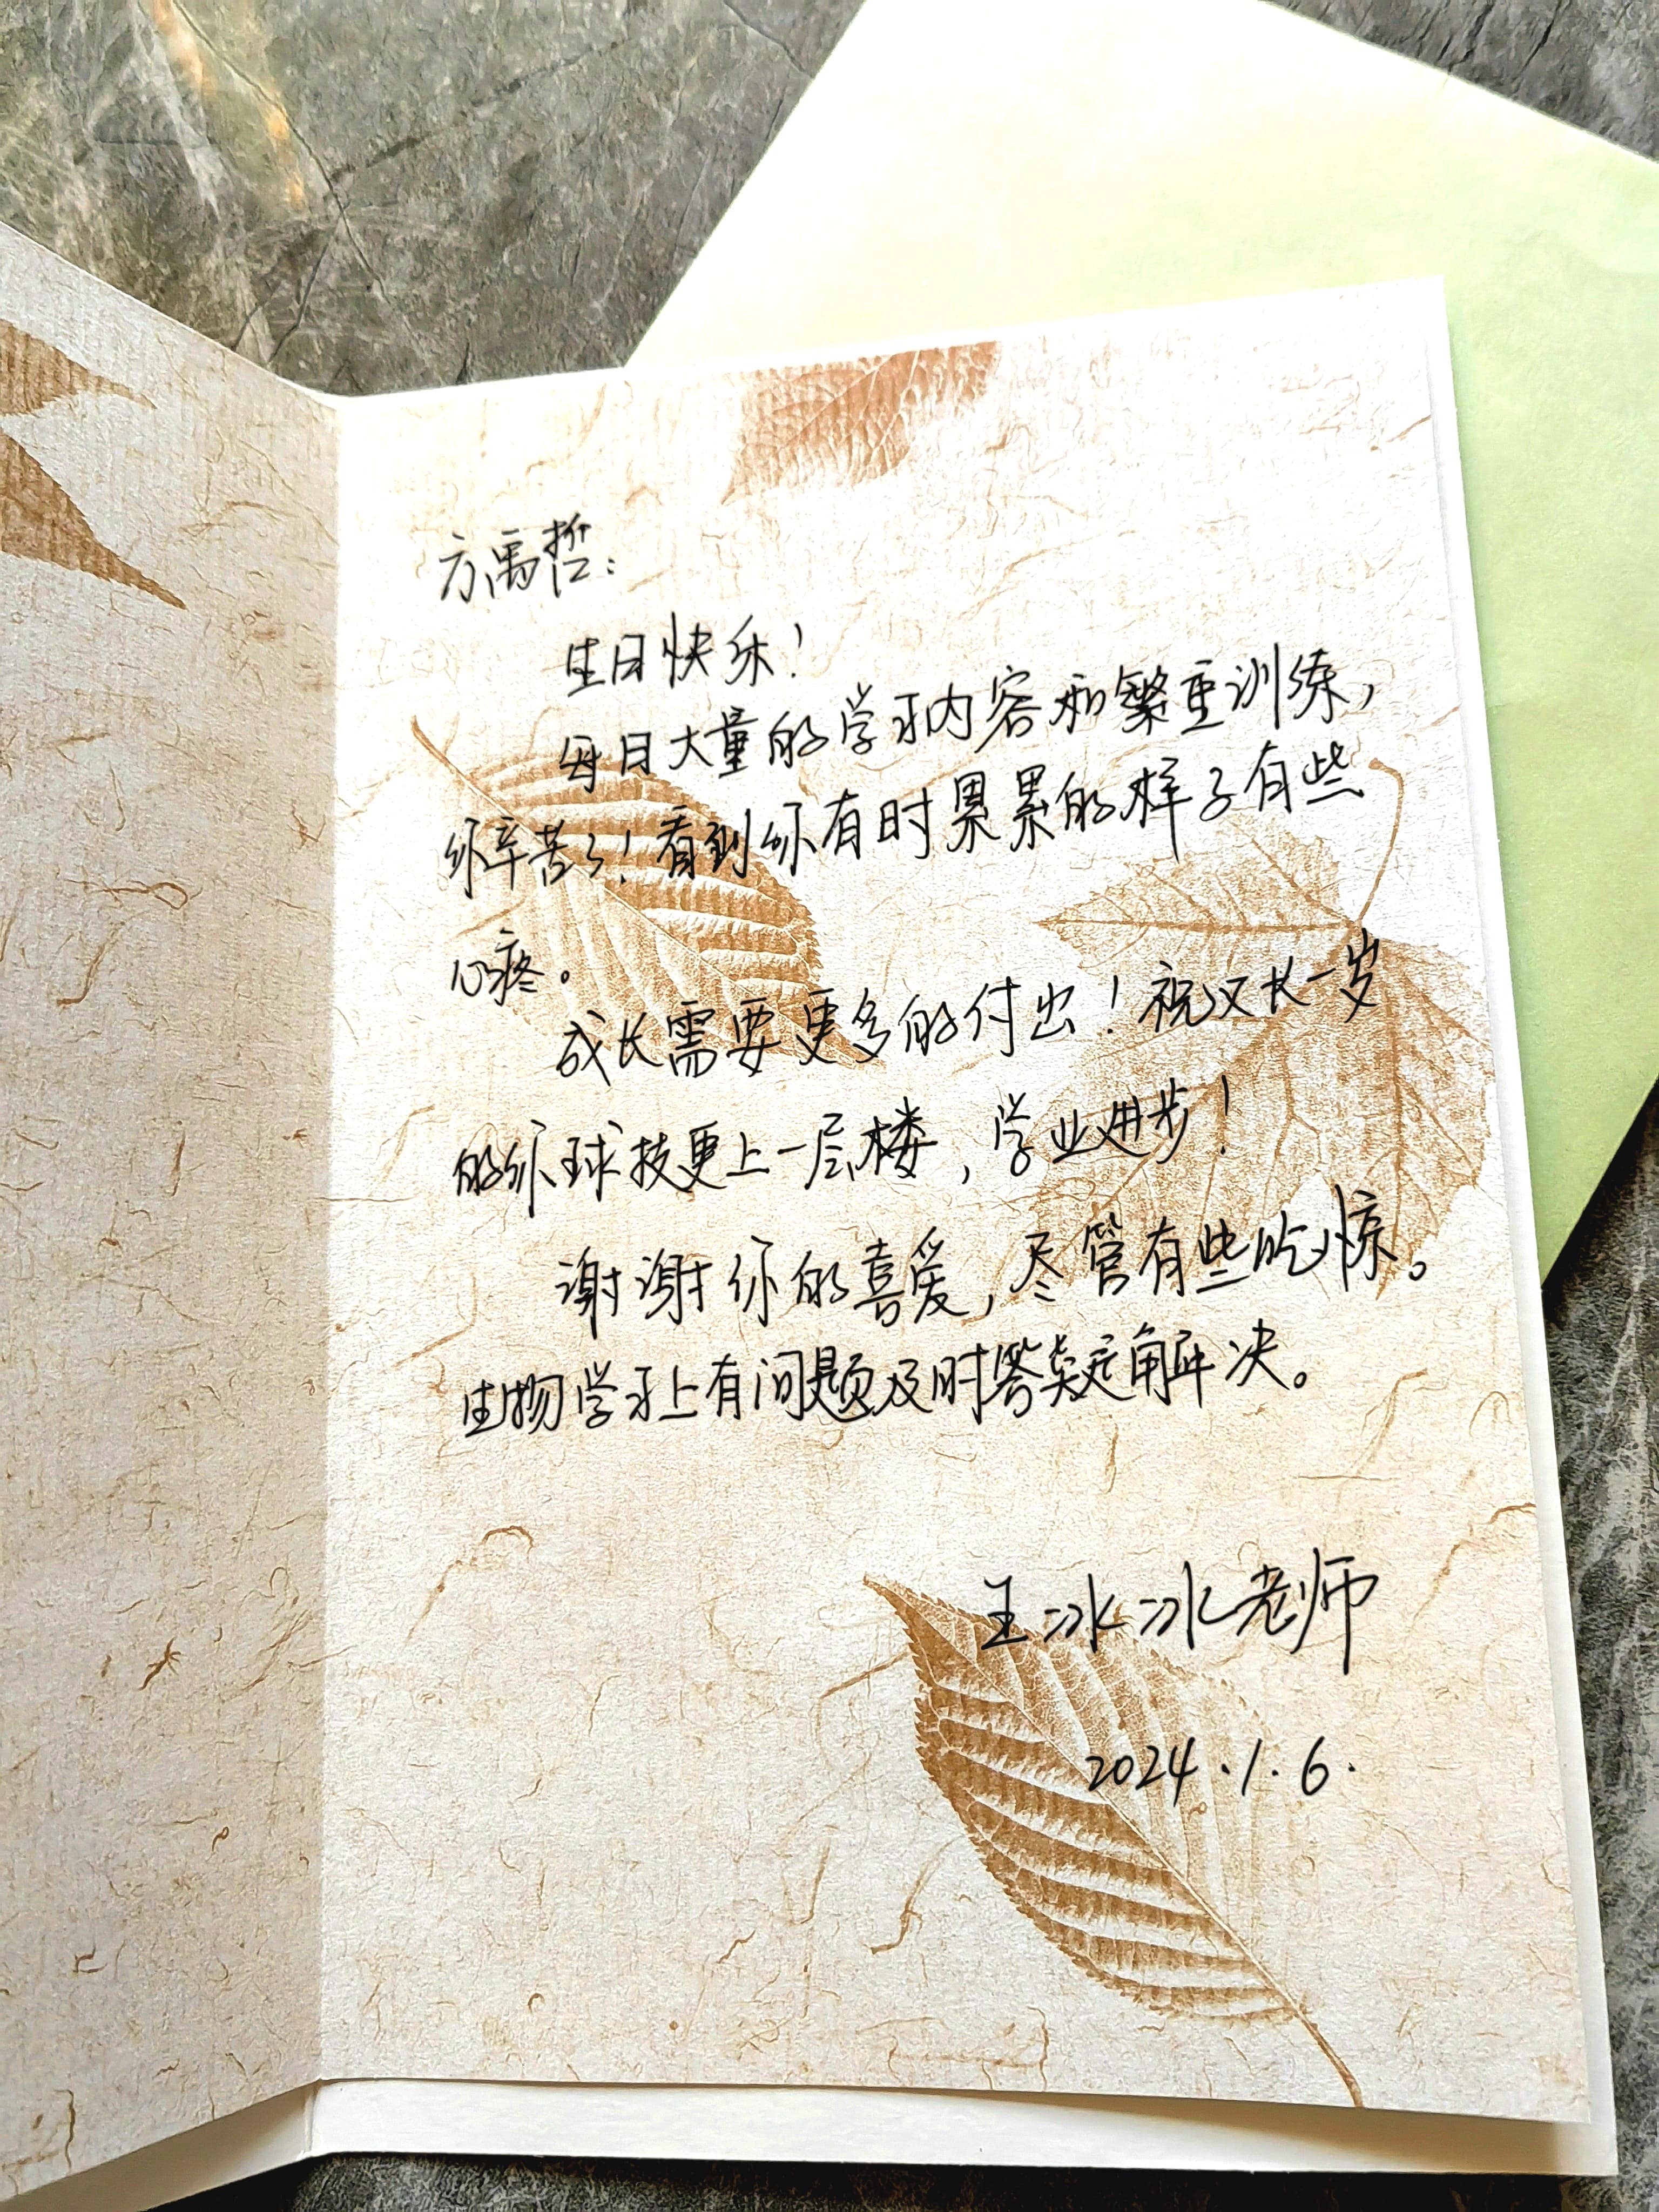 方禹哲：
生日快乐！
每日大量的学习内容和繁重训练，
你辛苦了！看到你有时累累的样子有些
心疼。
成长需要更多的付出！祝又长一岁
的你球技更上一层楼，学业进步！
谢谢你的喜爱，尽管有些吃惊。
生物学习上有问题及时答疑解决。
王冰冰老师
2024.1.6.